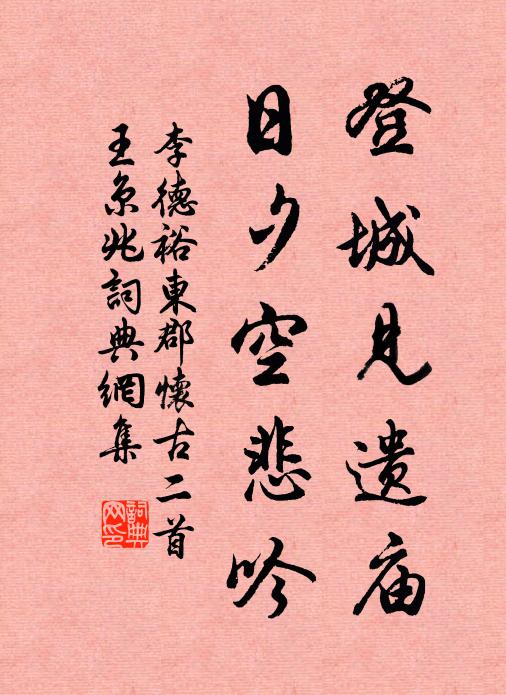 登城见遗庙
日夕空悲吟
李德裕東郡懷古二首
王京兆詞典網集
詞典网印